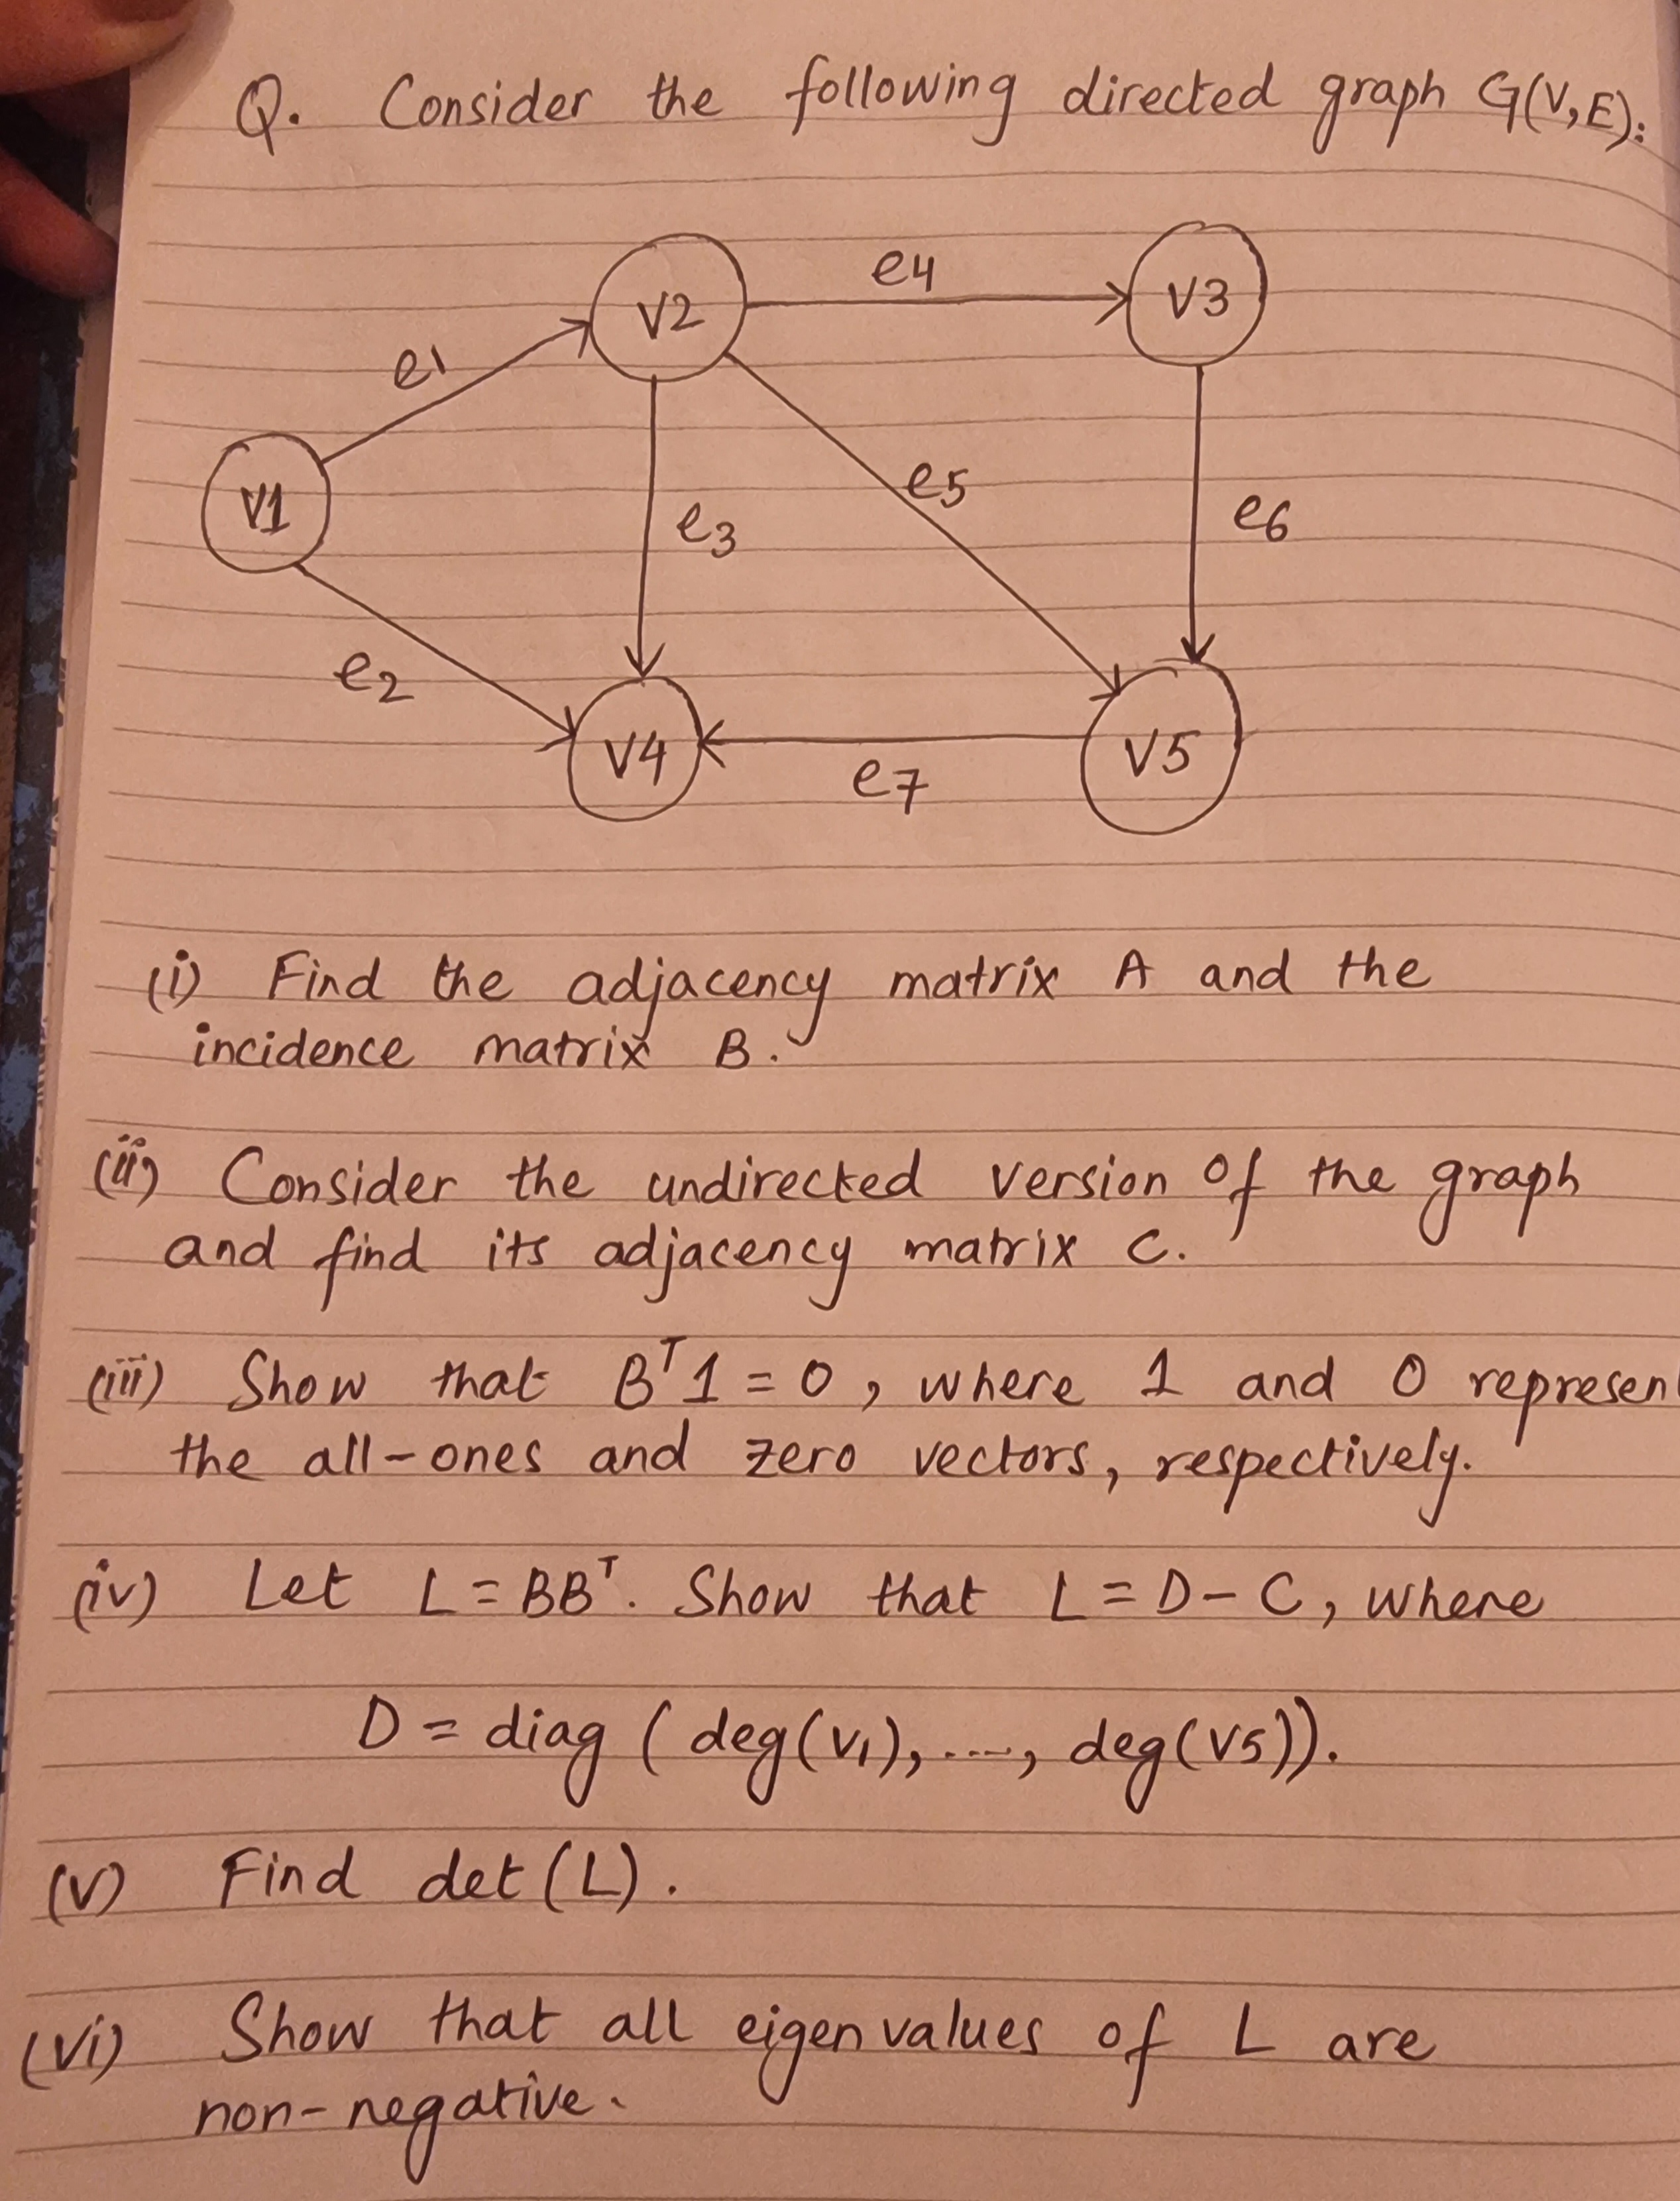 Q. Consider the following directed graph G(V,E):
e4
V2
V3
e1
V1
e5
e3
e6
e2
V4
V5
e7
(i) Find the adjacency matrix A and the
incidence matrix B.
(ii) Consider the undirected version of the graph
and find its adjacency matrix C.
(iii) Show that Bᵀ1 = 0, where 1 and 0 represen
the all-ones and zero vectors, respectively.
(iv) Let L = BBᵀ. Show that L = D - C, where
D = diag (deg(v1), ...., deg(v5)).
(v) Find det(L).
(vi) Show that all eigenvalues of L are
non-negative.